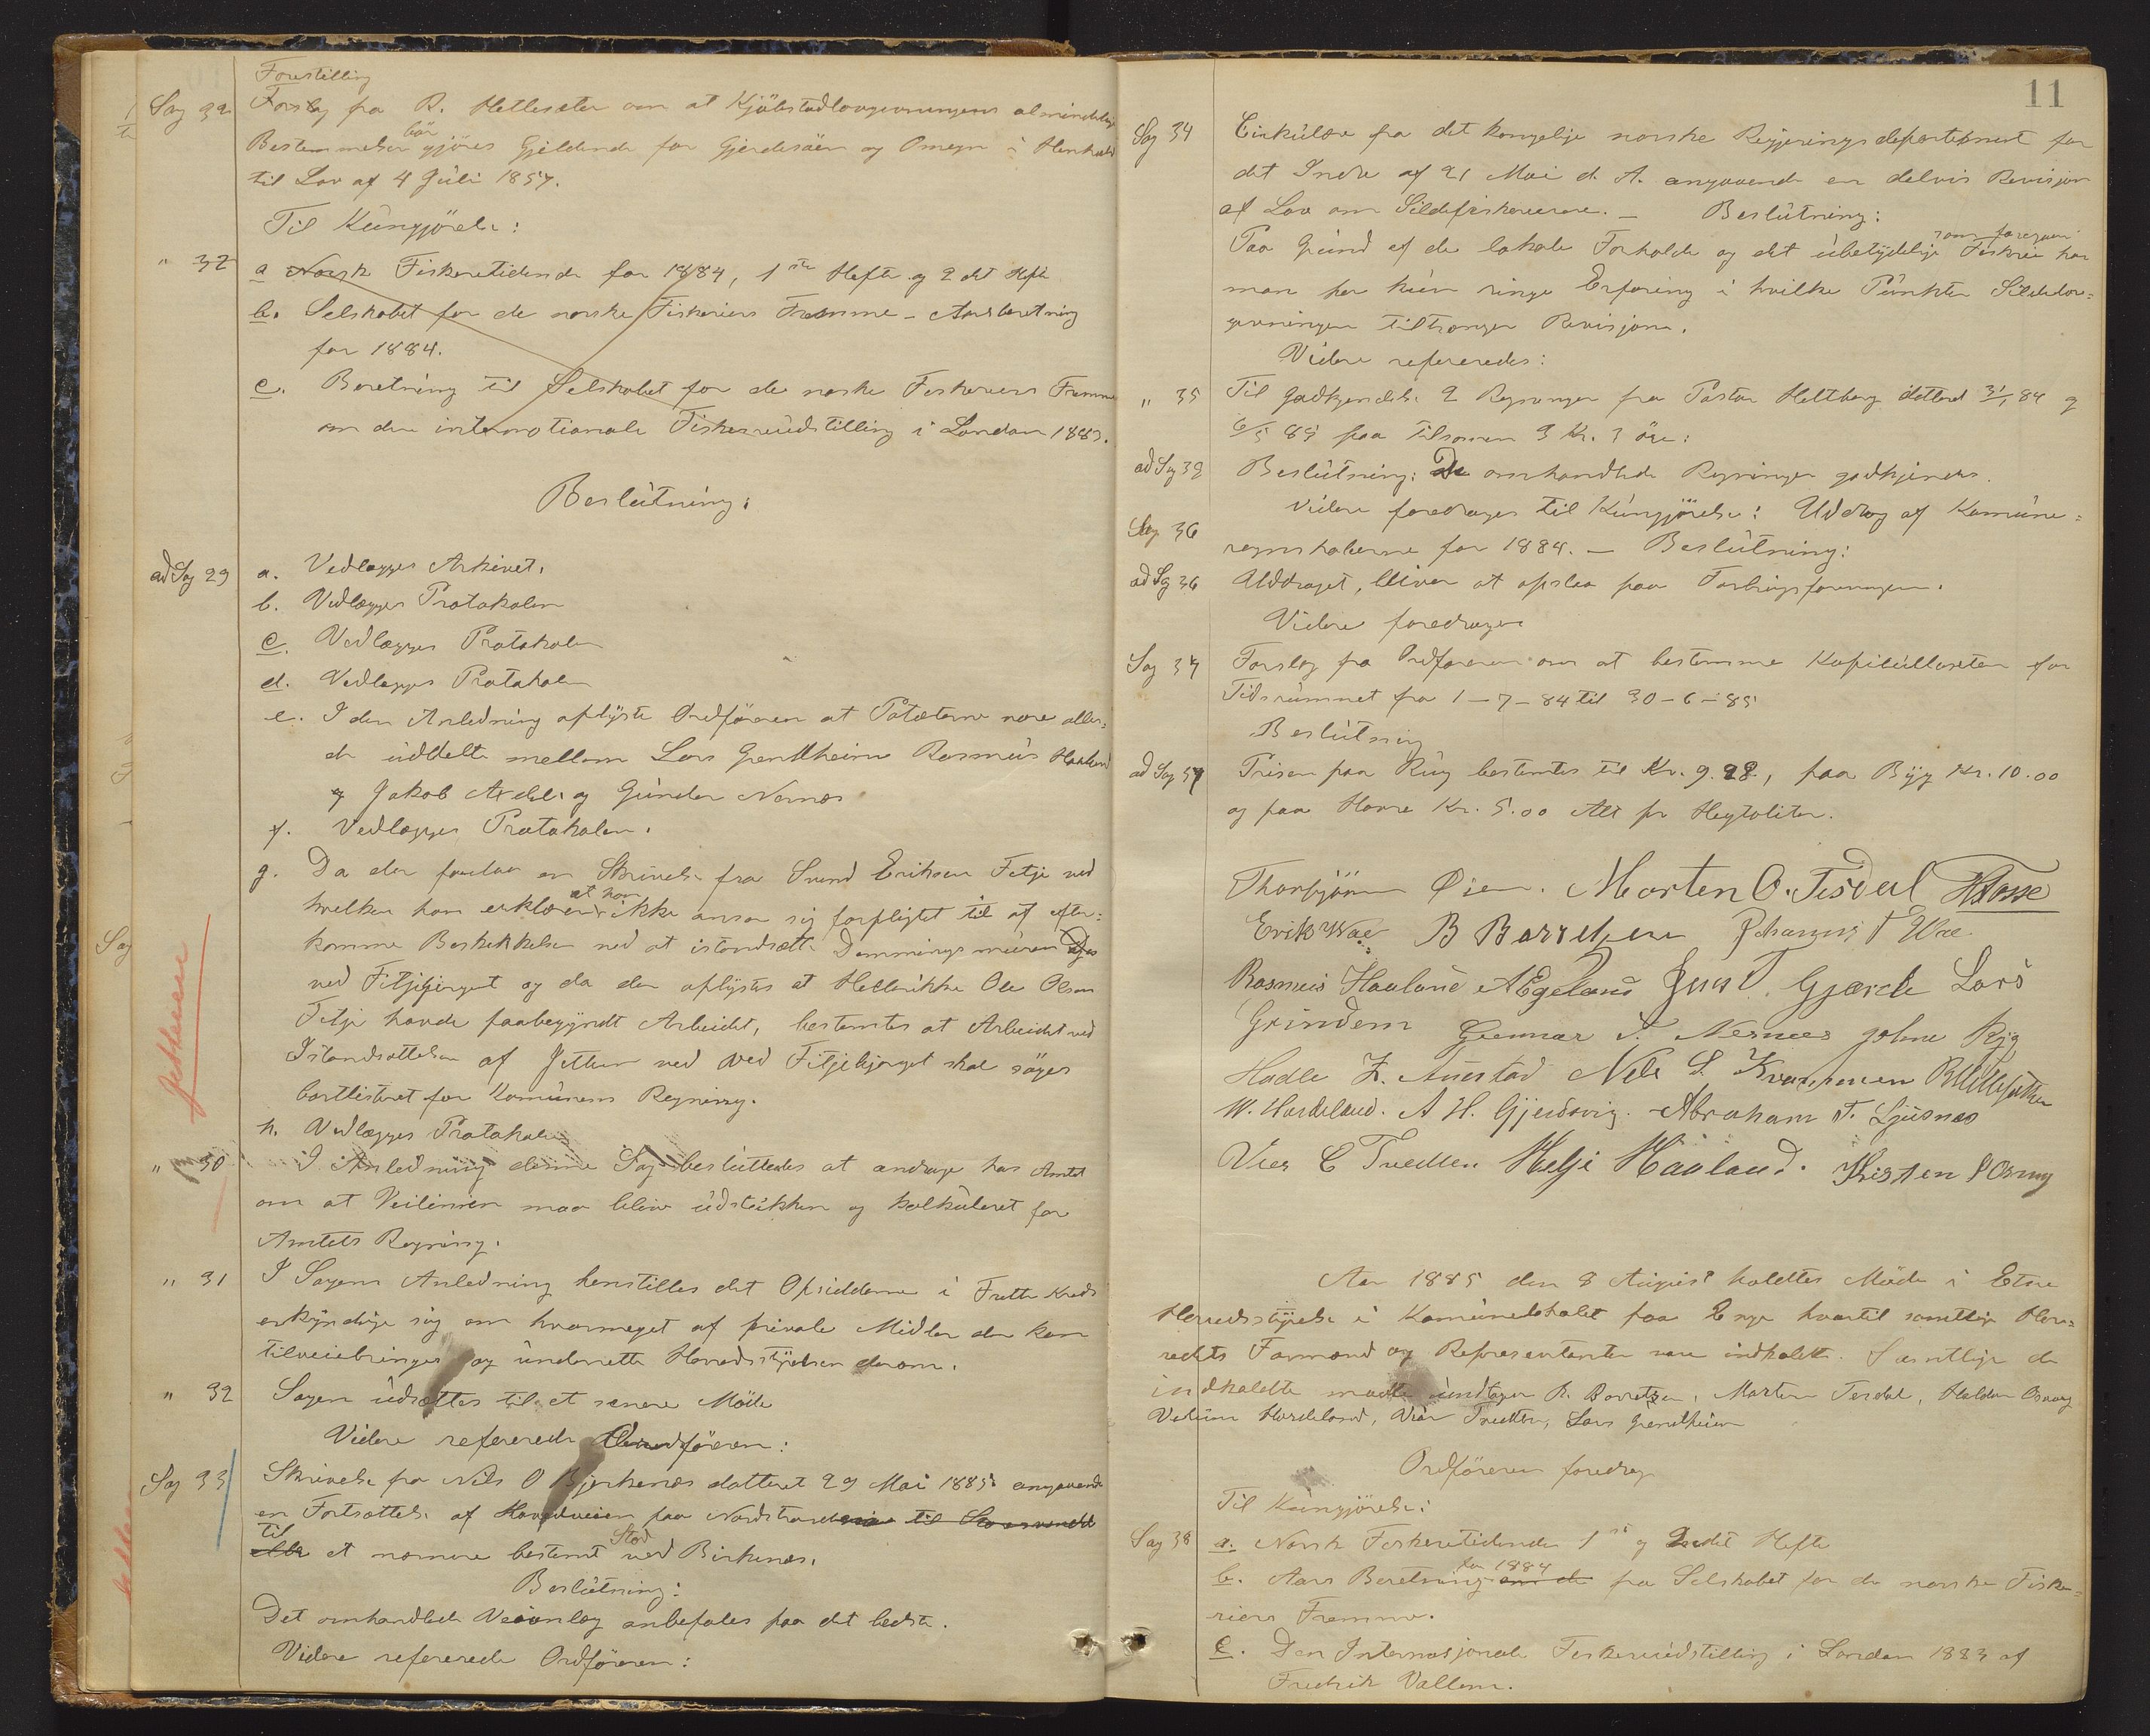 Forestilling
Sag 32 Forslag fra R. Hettesæter om at Kjöbstadlovgivningens almindelige
Bestemmelser bör gjöres Gjeldende for Gjerdesöen og Omegn i Henhold
til Lov af 4 Juli 1857.
Til Kungjörelse:
" 32 a Norsk Fiskeritidende for 1884, 1ste Hefte og 2det Hefte
b. Selskabet for de norske Fiskeriers Fremme - Aarsberetning
for 1884.
c. Beretning til Selskabet for de norske Fiskeriers Fremme
om den internationale Fiskeriudstilling i London 1883.
Beslutning:
ad Sag 29 a. Vedlægges Arkivet.
b. Vedlægges Protokolen
c. Vedlægges Protokolen
d. Vedlægges Protokolen
e. I den Anledning oplyste Ordföreren at Potæterne vare aller=
de uddelte mellem Lars Grindheim Rasmus Haaland
og Jakob og Gunder Nernes
f. Vedlægges Protokolen.
g. Da der forelaa en Skrivelse fra Svend Eriksen Fitje ved
hvilken han erklærer at han ikke anser sig forpligtet til at efter=
komme Beskikkelsen ved at istandsætte Demningsmuren
ved Fitjebjerget og da der oplystes at Hellerikke Ole Olsen
Fitje havde paabegyndt Arbeidet, bestemtes at Arbeidet ved
Istandsættelsen af Jetteen ved ved Fitjebjerget skal söges
bortlisteret for Komunens Regning.
Jettheen
h. Vedlægges Protokolen
" 30 I Anledning denne Sag besluttedes at andrage hos Amtet
om at Veilinien maa blive udstukken og kalkuleret for
Amtets Regning.
" 31 I Sagens Anledning henstilles det Opsidderne i Frette Kreds
erkyndige sig om hvormeget af private Midler der kan
tilveiebringes og underrette Herredsstyrelsen derom.
" 32 Sagen udsættes til et senere Möde
Videre refererede Ordföreren:
Sag 33 Skrivelse fra Nils O Bjerkenes datteret 29 Mai 1885 angaaende
en Fortsættelse af Hovedveien paa Nordstranden til
til et nærmere bestemt Sted ved Birkenes.
Beslutning:
Det omhandlede Veianlæg anbefales paa det bedste.
Videre refererede Ordföreren:
11
Sag 34 Cirkulære fra det kongelige norske Regjerings departement for
det Indre af 21 Mai d. A. angaaende en delvis Revisjon
af Lov om Sildefiskerierne. - Beslutning:
Paa Grund af de lokale Forholde og det ubetydelige Fiskeri som foregaar har
man her kun ringe Erfaring i hvilke Punkter Sildelov=
givningen tiltrænger Revisjon.
Videre refereredes:
" 35 Til Godkjendelse 2 Regninger fra Pastor Heltberg datteret 31/1 84 og
6/5 85 paa Tilsamen 3 Kr. 3 öre:
ad Sag 39 Beslutning: De omhandlede Regninger godkjendes.
Videre foredrages til Kungjörelse: Uddrag af Komune=
Sag 36
regnskaberne for 1884. - Beslutning:
ad Sag 36 Uddraget bliver at opslaa paa Forligsforningen.
Videre foredrages
Sag 37 Forslag fra Ordföreren om at bestemme Kapitultaxten for
Tidsrummet fra 1-7-84 til 30-6-85
Beslutning
ad Sag 37 Prisen paa Rug bestemtes til Kr. 9.28, paa Byg Kr. 10.00
og paa Havre Kr. 5.00 Alt pr Hegtoliter.
Thorbjörn Øien. Morten O. Tesdal
Erik Wae B Barretzen Johannes T Wae
Rasmus Haaland A Egeland T. Gjærde Lars
Grindem Gunnar T. Nernes John Ryg
Hadle Z. Austad Nels S. Kvammen R Hettesæther
W. Hardeland. A H. Gjerdsvig. Abraham T. Ljusnes
Vier C Tvedten Helje Haaland. Kristen P Osnug
Aar 1885 den 8 August holdtes Möde i Etne
Herredsstyrelse i Komunelokalet paa Enge hvortil samtlige Her=
redets Formænd og Repræsentanter vare indkaldt. Samtlige de
indkaldte mødte undtagen B. Barretzen, Morten Tesdal, Halden Osnug
Hardeland, Vier Tvedten, Lars Grindheim
Ordföreren foredrog
Til Kungjörelse:
Sag 38 a. Norsk Fiskeritidende 1ste og 2det Hefte
b. Aars Beretning for 1884 om de fra Selskabet for de norske Fiske=
riers Fremme.
c. Den Internasjonale Fiskeriudstilling i London 1883 af
Fredrik Wallem.